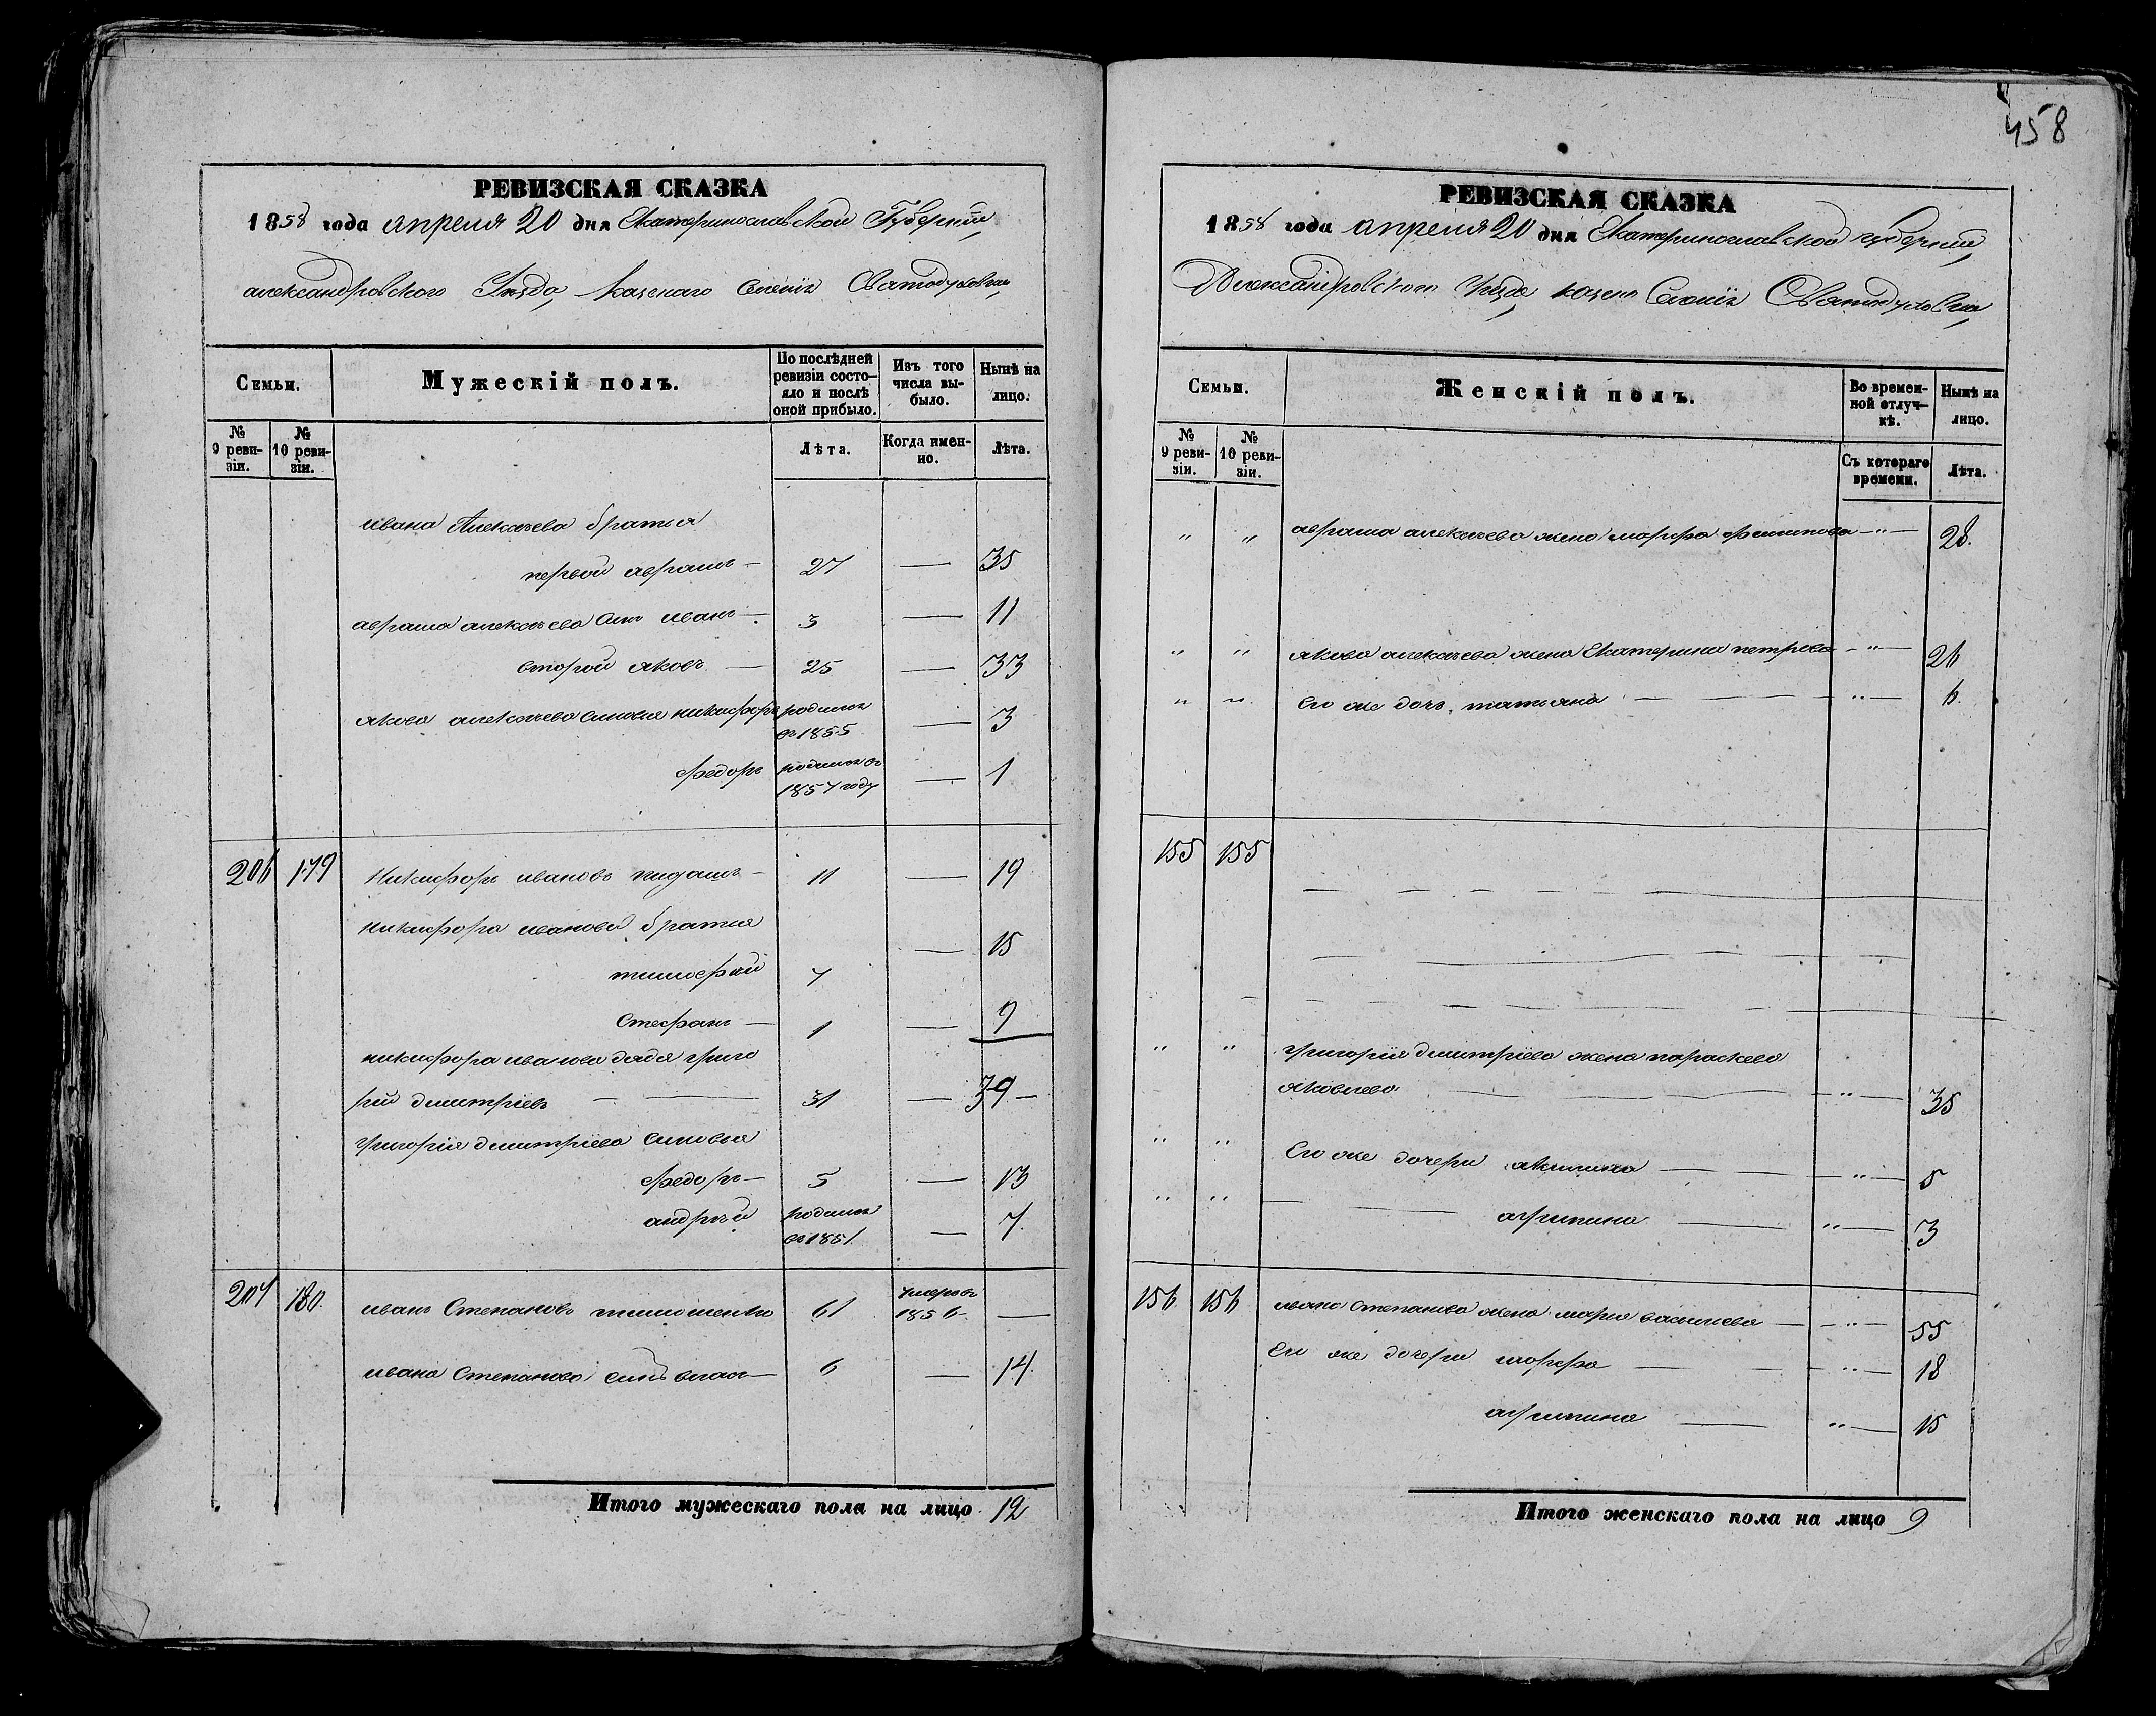 РЕВИЗСКАЯ СКАЗКА
1858 года апреля 20 дня Екатеринославской Губернии,
александровского Уезда, Казенаго Селенія Святодуховки,
Семьи.
Мужескій полъ.
По послѣдней ревизіи состо-яло и послѣ оной прибыло.
Изъ того числа вы-было.
Нынѣ на лицо.
№ 9 реви-зіи.
№ 10 реви-зіи.
Лѣта.
Когда имен-но.
Лѣта.
ивана Алексѣева братья
первой аврамъ — 27 — 35
аврама алексѣева сынъ иванъ — 3 — 11
второй яковъ — 25 — 33
якова алексѣева сыновья никифоръ родился въ 1855 — 3
федоръ родился въ 1857 году — 1
206 179 Никифоръ ивановъ — 11 — 19
никифора иванова братья
тимофей 7 — 15
Стефанъ — 1 — 9
никифора иванова дядя григо
рій дмитріевъ — — 31 — 39 —
григорія дмитріева сыновья
федоръ — 5 — 13
андрѣй родился въ 1851 — 7.
207 180. иванъ Степановъ тимошенко 61 умеръ въ 1856 —
ивана Степанова сынъ — 6 — 14.
Итого мужескаго пола на лицо 12
458
РЕВИЗСКАЯ СКАЗКА
1858 года апреля 20 дня Екатеринославской губернии,
Александровского Уезда казено Селенія Святодуховки,
Семьи.
Женскій полъ.
Во времен-ной отлуч-кѣ.
Нынѣ на лицо.
№ 9 реви-зіи.
№ 10 реви-зіи.
Съ котораго времени.
Лѣта.
" " аврама алексѣева жена марфа филипова — " — 28.
" " якова алексѣева жена Екатерина петрова — " — 26
" " Его же дочь татьяна — — " — 6.
155 155
" " григорія дмитріева жена параскева
яковлева — — " — 35
" " Его же дочери акилина — — " — 5
" " — агрипина — " — 3
156 156 ивана степанова жена марья васильева — " — 55
Его же дочери марфа — — " — 18
агрипина — " — 15
Итого женскаго пола на лицо 9